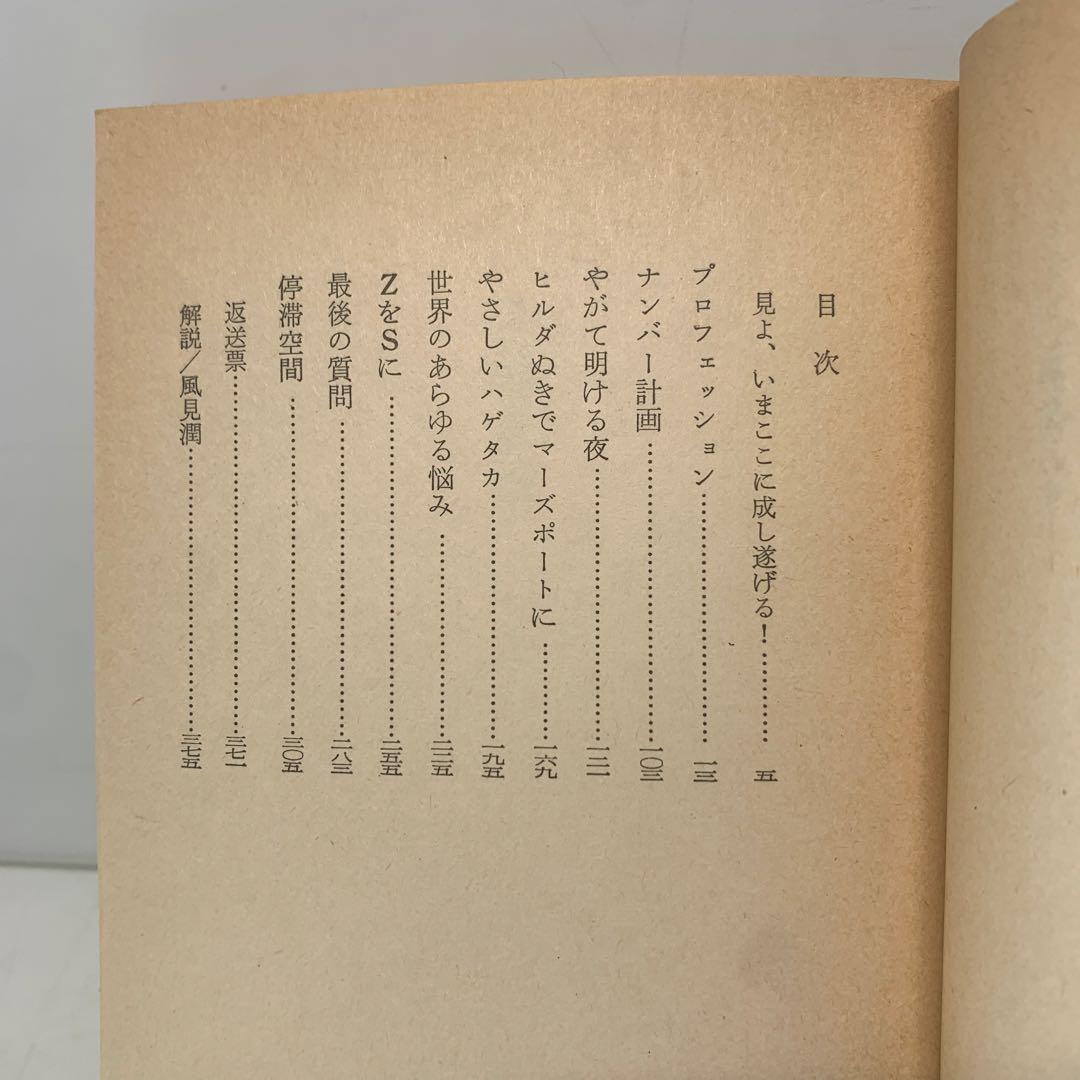 目次
見よ、いまここに成し遂げる！…………五
プロフェッション…………一三
ナンバー計画…………一〇三
やがて明ける夜…………一二一
ヒルダぬきでマーズポートに…………一六九
やさしいハゲタカ…………一九五
世界のあらゆる悩み…………二二五
ZをSに…………二五五
最後の質問…………二八三
停滞空間…………三〇五
返送票…………三七一
解説／風見潤…………三七五